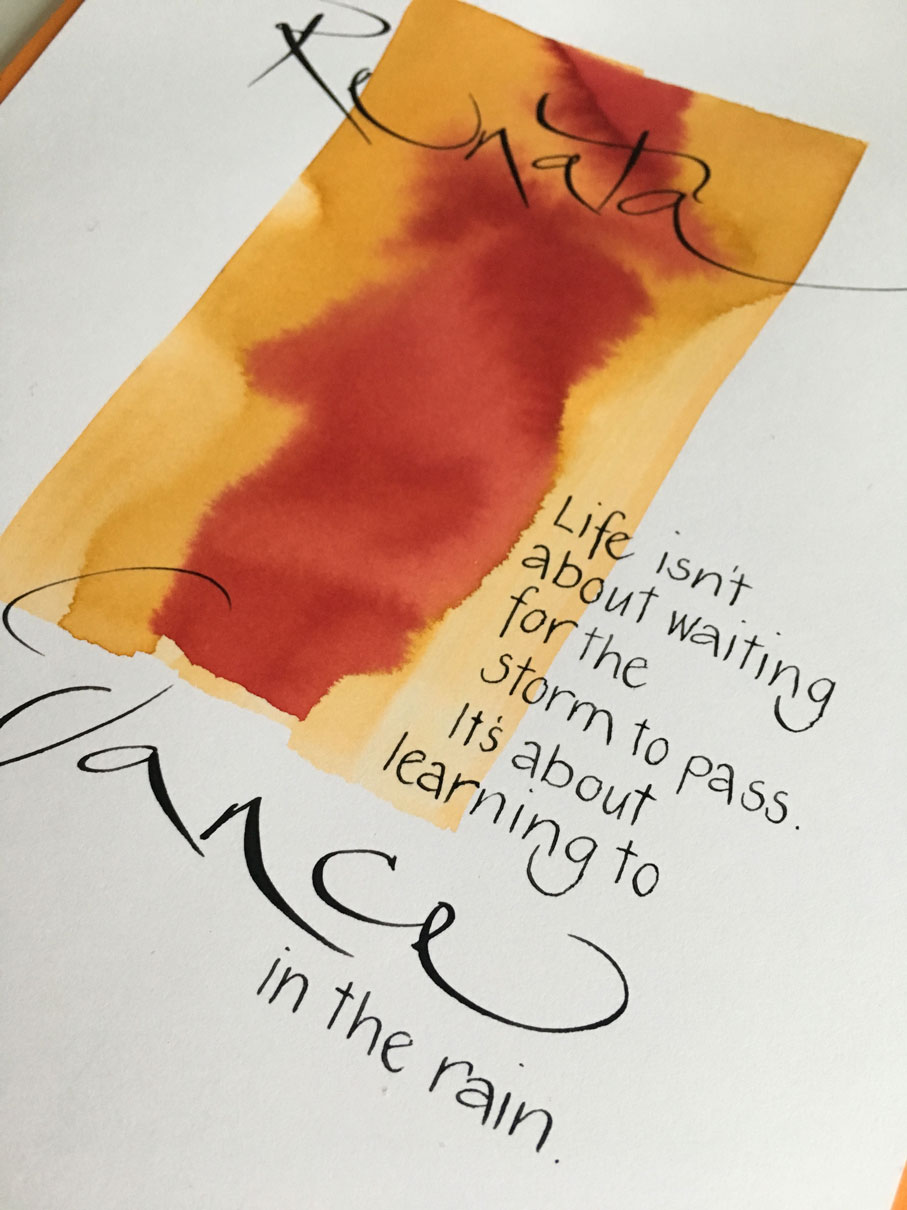 Renata
Life isn't
about waiting
for the
storm to pass.
It's about
learning to
dance
in the rain.